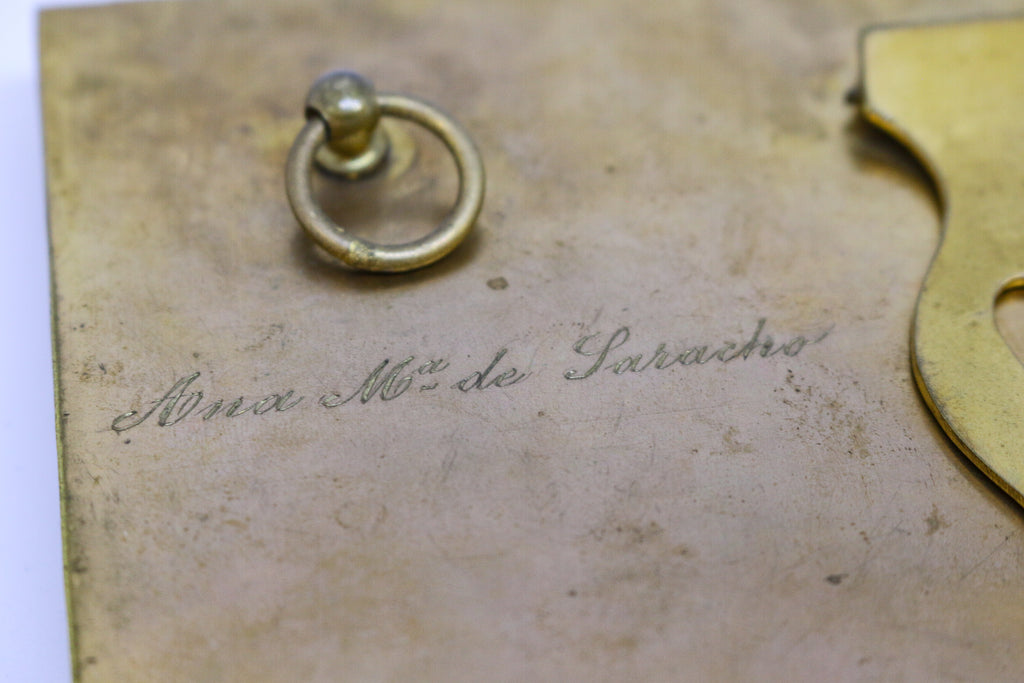 Ana Mª de Saracho